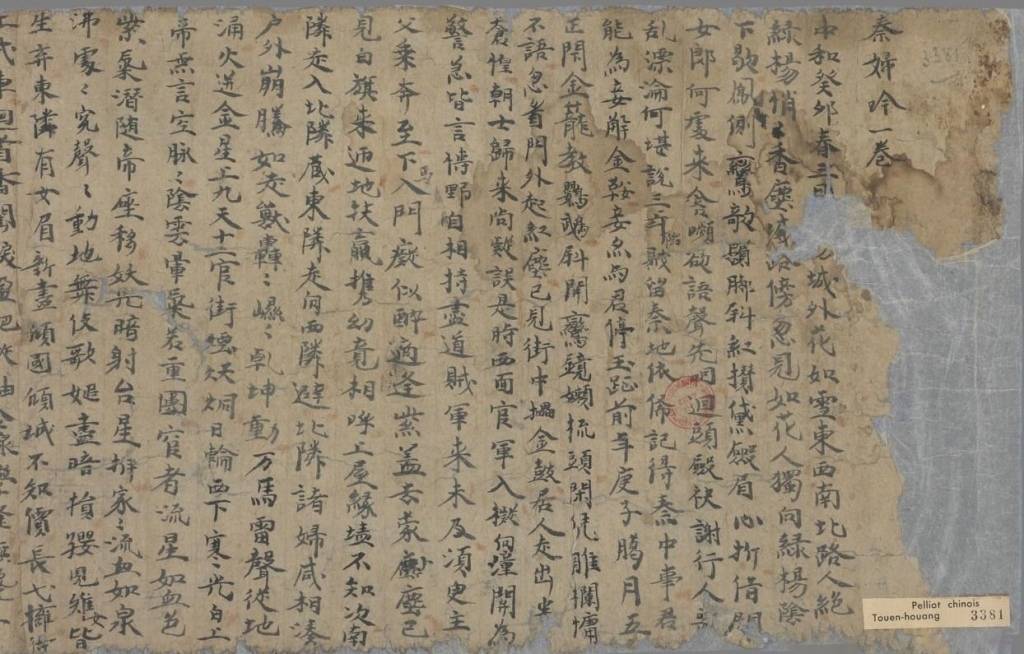 秦婦吟一卷
中和癸卯春三月 城外花如雪東西南北路人絕
綠楊悄〻香塵滅路傍忽見如花人獨向綠楊陰
下歇鳳側鸞歌鬢腳斜紅攢黛歛眉心折借問
女郎何處來含嚬欲語聲先咽迴頭歛袂謝行人喪
乱漂淪何堪說三年陷賊留秦地依俙記得秦中事君
能為妾解金鞍妾亦為君停玉趾前年庚子臘月五
正閇金籠教鸚鵡斜開鸞鏡嬾梳頭閑凭雕欄慵
不語忽看門外起紅塵已見街中擂金鼓居人走出半
倉惶朝士歸來尚疑誤是時西面官軍入擬向潼關為
警急皆言博野自相持盡道賊軍來未及須臾主
父乘奔至下馬入門癡似醉適逢紫盖去蒙塵已
見白旗來迊地扶羸携幼竟相呼上屋緣墻不知次南
隣走入北隣藏東隣走向西隣避北隣諸婦咸相湊
户外崩騰如走獸轟〻〻乾坤動万馬雷聲從地
涌火迸金星上九天十二官街煙炯日輪西下寒〻光白上
帝無言空脉〻陰雲暈氣若重圍宦者流星如血色
紫氣潛随帝座移妖光暗射台星拆家〻流血如泉
沸處〻冤聲〻動地舞伎歌姬盡暗損嬰兒雉女皆
生弃東隣有女眉新畫傾國傾城不知價長戈擁得
Pelliot chinois
Touen-houang 3381